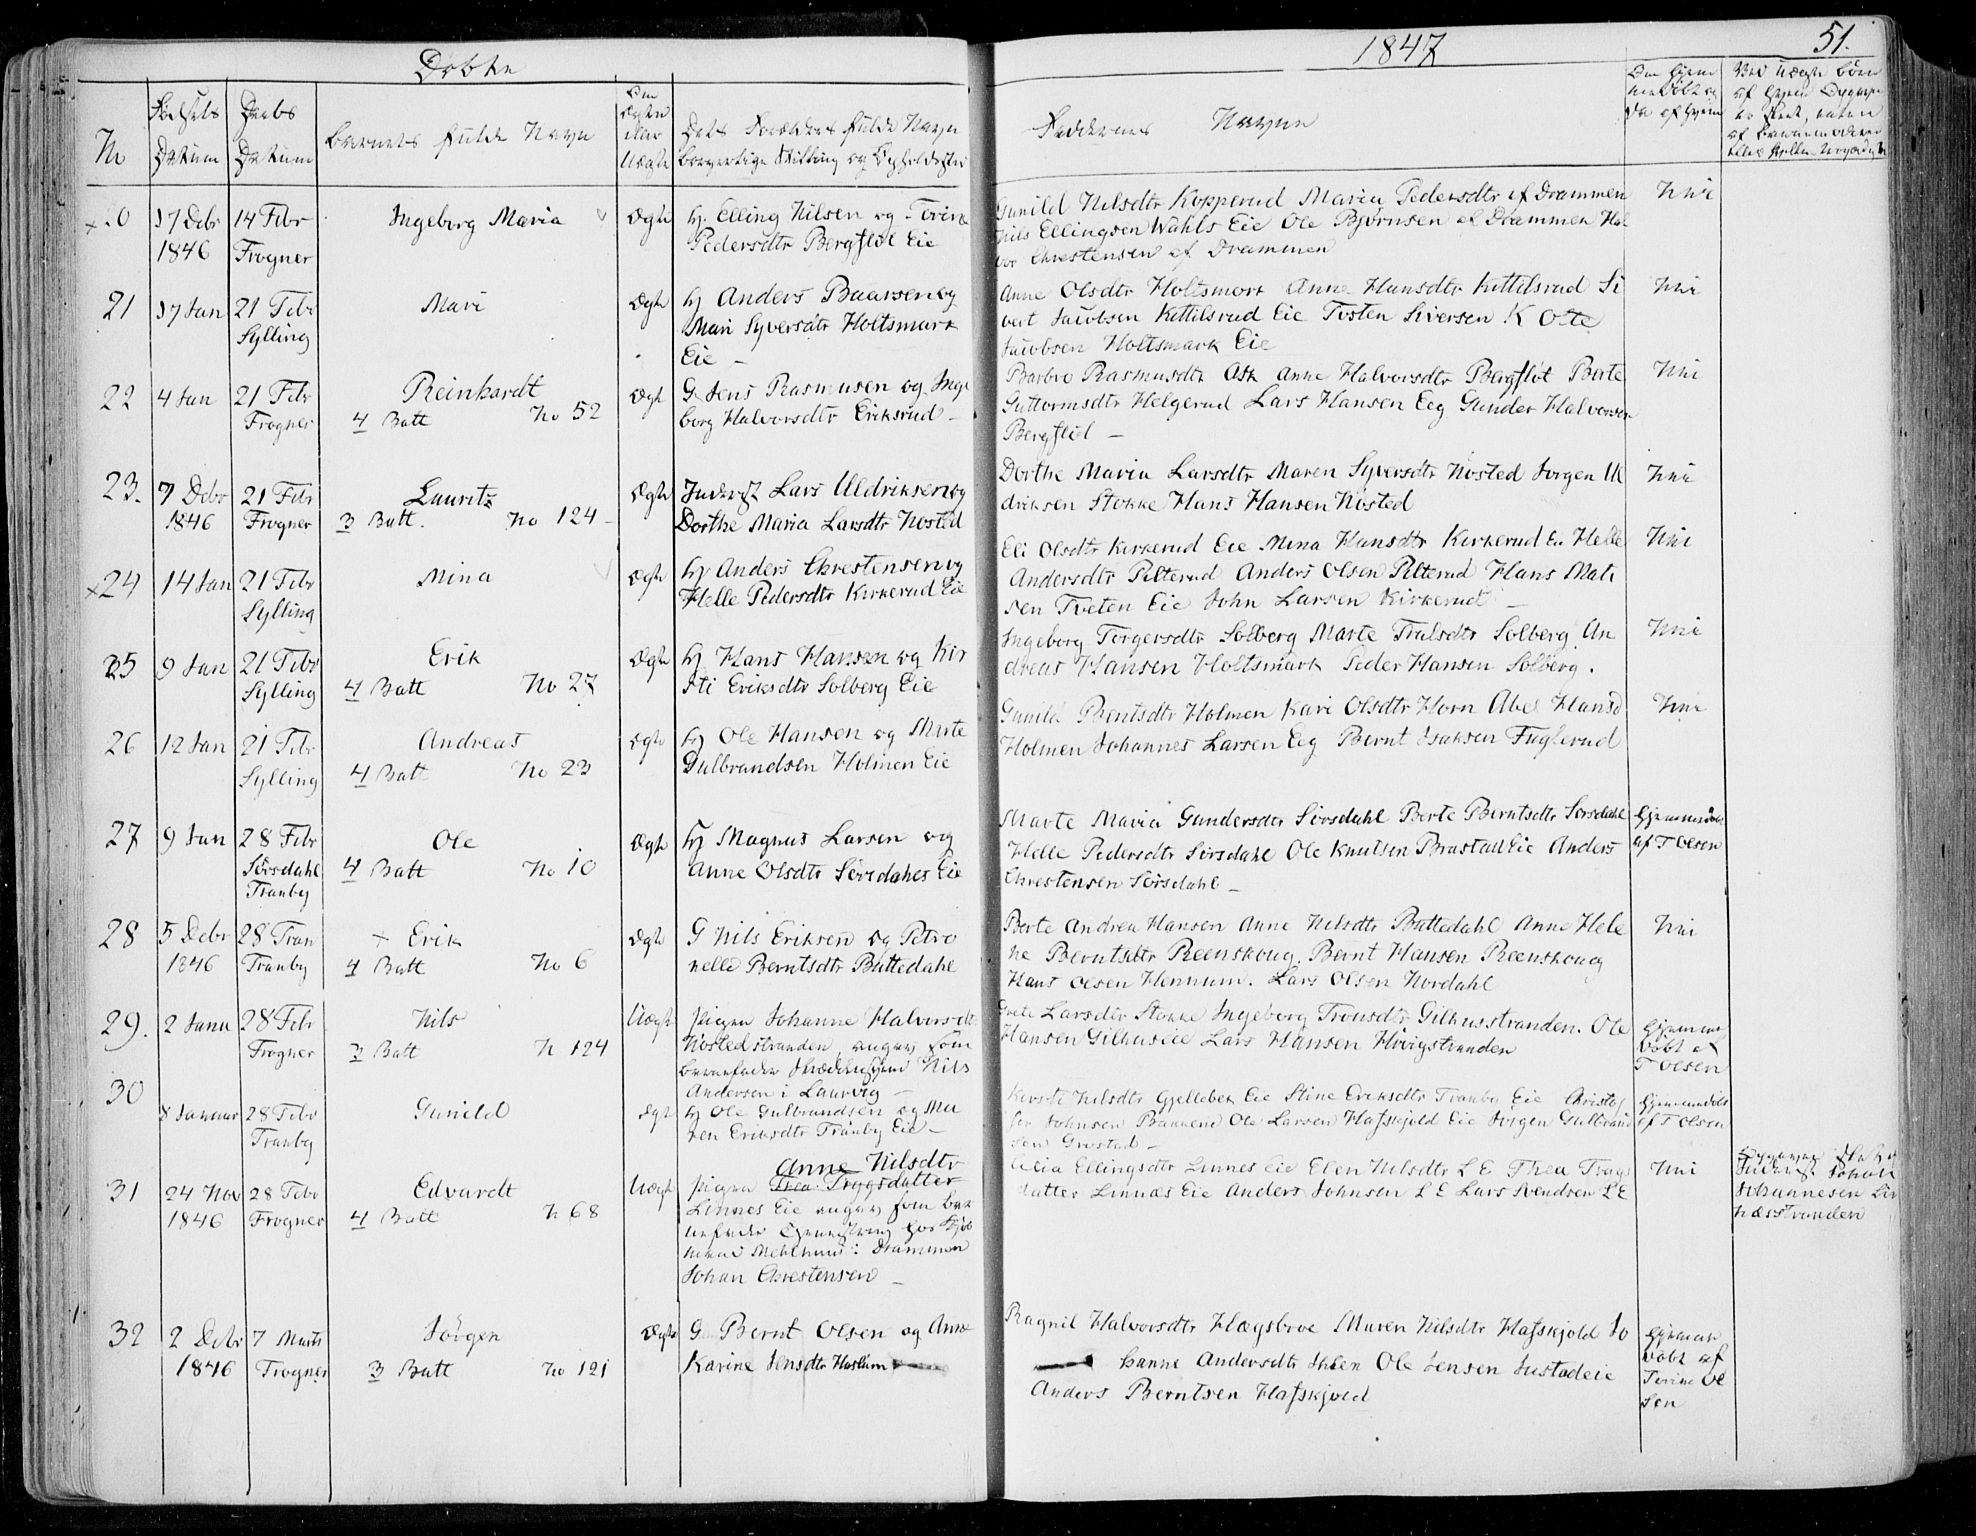 Døbte
1847
51.
No
Fødsels Datum
Daabs Datum
Barnets fulde Navn
Om Ægte eller Uægte
Dets Forældres fulde Navn borgerlige Stilling og Opholdssted
Faddernes Navne
20
17 Debr 1846
14 Febr Frogner
Ingeborg Maria
Ægte
Hj. Elling Nilsen og Torine
Pedersdtr Bergfløt Eie
Gunild Nilsdtr Kopperud Maria Pedersdtr af Drammen
Nils Ellingsen Wahls Eie Ole Bjørnsen af Drammen Hal
vor Chrestensen af Drammen
Nei
21
17 Jan
21 Febr Sylling
Mari
Ægte
Hj Anders Paarsen og
Mari Syversdtr Holtsmark
Eie
Anne Olsdtr Holtsmark Anne Hansdtr Kittilsrud Si
vert Jacobsen Kittilsrud Eie Tosten Siversen K Ole
Jacobsen Holtsmark Eie
Nei
22
4 Jan
21 Febr Frogner
Reinhardt
4 Batt No 52
Ægte
G Jens Rasmusen og Inge
borg Halvorsdtr Eriksrud
Barbro Rasmusdtr Ask Anne Halvorsdtr Bergfløt Berte
Guttormsdtr Helgerud Lars Hansen Eeg Gunder Halvorsen
Bergfløt
Nei
23.
7 Debr 1846
21 Febr Frogner
Lauritz
3 Batt. No 124
Ægte
Inderst Lars Uldriksen og
Dorthe Maria Larsdtr Nøsted
Dorthe Maria Larsdtr Maren Syversdtr Nøsted Jørgen Ul
driksen Stokke Hans Hansen Nøsted
Nei
24
14 Jan
21 Febr Sylling
Mina
Ægte
Hj Anders Chrestensen og
Helle Pedersdtr Kirkerud Eie
Eli Olsdtr Kirkerud Eie Mina Hansdtr Kirkerud Ei Helle
Andersdtr Pilterud Anders Olsen Pilterud Hans Mati
sen Tveten Eie John Larsen Kirkerud
Nei
25
9 Jan
21 Febr Sylling
Erik
4 Batt No 27
Ægte
Hj Hans Hansen og Kir
sti Eriksdtr Solberg Eie
Ingeborg Torgersdtr Solberg Marte Trulsdtr Solberg An
dreas Hansen Holtsmark Peder Hansen Solberg.
Nei
26
12 Jan
21 Febr Sylling
Andreas
4 Batt No 23
Ægte
Hj Ole Hansen og Marte
Gulbrandsen Holmen Eie
Gunild Berntsdtr Holmen Kari Olsdtr Horn Abel Hansd
Holmen Johannes Larsen Eeg Bernt Isaksen Fuglerud
Nei
27
9 Jan
28 Febr Sørsdahl Tranby
Ole
4 Batt No 10
Ægte
Hj Magnus Larsen og
Anne Olsdtr Sørsdahls Eie
Marte Maria Gundersdtr Sørsdahl Berte Berntsdtr Sørsdahl
Helle Pedersdtr Sørsdahl Ole Knutsen Brastad Eie Anders
Chrestensen Sørsdahl
Hjemmedøbt af T Olsen
28
5 Debr 1846
28 Tran Tranby
Erik
4 Batt No 6
Ægte
G Nils Eriksen og Petro
nelle Berntsdtr Buttedahl
Berte Andrea Hansen Anne Nilsdtr Buttedahl Anne Hele
ne Berntsdtr Reenskoug. Bernt Hansen Reenskoug
Hans Olsen Hennum. Lars Olsen Nordahl
Nei
29.
2 Janu
28 Febr Frogner
Nils
3 Batt N 124
Uægte
Pigen Johanne Halvorsdtr
Nøstedstranden, angav som
barnefader Skræddersvend Nils
Andersen i Laurvig
Grete Larsdtr Stokke Ingeborg Tronsdtr Gilhusstranden. Ole
Hansen Gilhuseie Lars Hansen Hivigstranden
Hjemme døbt af T Olsen
30
8 Januar
28 Febr Tranby
Gunild
Ægte
Hj Ole Gulbrandsen og Ma
ren Eriksdtr Tranby Eie
Kirste Nilsdtr Gjellebek Eie Stine Eriksdtr Tranby Eie Christof
fer Johnsen Ole Larsen Hafskjold Eie Jørgen Gulbrand
sen Grøstad
Hjemmedøbt af T Olsen
31
24 Nov 1846
28 Febr Frogner
Edvardt
4 Batt N 68
Uægte
Anne Nilsdtr
Pigen Thea Trygsdatter
Linnes Eie angav som bar
nefader Tjenestdreng hos Kjøb
mand Mehlhuus i Drammen
Johan Chrestensen
Cicia Ellingsdtr Linnes Eie Elen Nilsdtr L E Thea Tryg
datter Linnæs Eie Anders Johnsen L E Lars Svendsen L E
Nei
Johannesen Lin
næsstranden
32
2 Debr 1846
7 Marts Frogner
Jørgen
3 Batt No 121
Ægte
G Bernt Olsen og Anne
Karine Jensdtr Haslum
Ragnil Halvorsdtr Hægsbroe Maren Nilsdtr Hafskjold Jo
hanne Andersdtr Ole Jensen Justadeie
Anders Berntsen Hafskjold
Hjemme døbt af Torine Ol sen